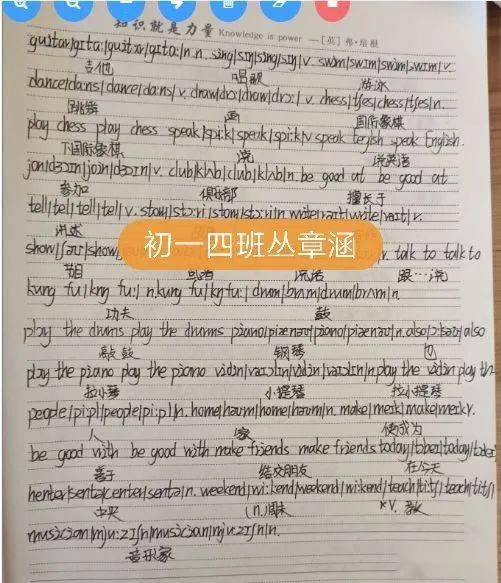 知识就是力量 Knowledge is power —[英] 弗·培根
guitar/gɪta:/guitar/gɪta:/n.n. sing/sɪŋ/sing/sɪŋ/v. swim/swɪm/swim/swɪm/v.
吉他 唱歌 游泳
dance/da:ns/dance/da:ns/v. draw/drɔ:/draw/drɔ:/v. chess/tʃes/chess/tʃes/n.
跳舞 画 国际象棋
play chess play chess speak/spi:k/speak/spi:k/v speak English speak English.
下国际象棋 说 说英语
join/dʒɔɪn/join/dʒɔɪn/v. club/klʌb/club/klʌb/n. be good at be good at
参加 俱乐部 擅长于
tell/tel/tell/tel/v. story/stɔ:ri/story/stɔ:ri/n. write/raɪt/write/raɪt/v.
讲述
初一四班丛章涵
show/ʃəʊ/show talk to talk to
跟…说
kung fu/kʌŋ fu:/n. kung fu/kʌŋ fu:/drum/drʌm/drum/drʌm/n
功夫 鼓
play the drums play the drums piano/piænəʊ/piano/piænəʊ/n. also/ɔ:lsəʊ/also
敲鼓 钢琴 也
play the piano play the piano violin/vaɪəlɪn/violin/vaɪəlɪn/n play the violin play th
拉小琴 小提琴 拉小提琴
people/pi:pl/people/pi:pl/n. home/həʊm/home/həʊm/n. make/meɪk/make/meɪk/v.
人 家 使成为
be good with be good with make friends make friends today/tədeɪ/today/tədeɪ
善于 结交朋友 在今天
center/sentə/center/sentə/n. weekend/wi:kend/weekend/wi:kend/teach/ti:tʃ/teach/ti:tʃ/
中央 (n.)周末 v. 教
musician/mju:zɪʃn/musician/mju:zɪʃn/n.
音乐家